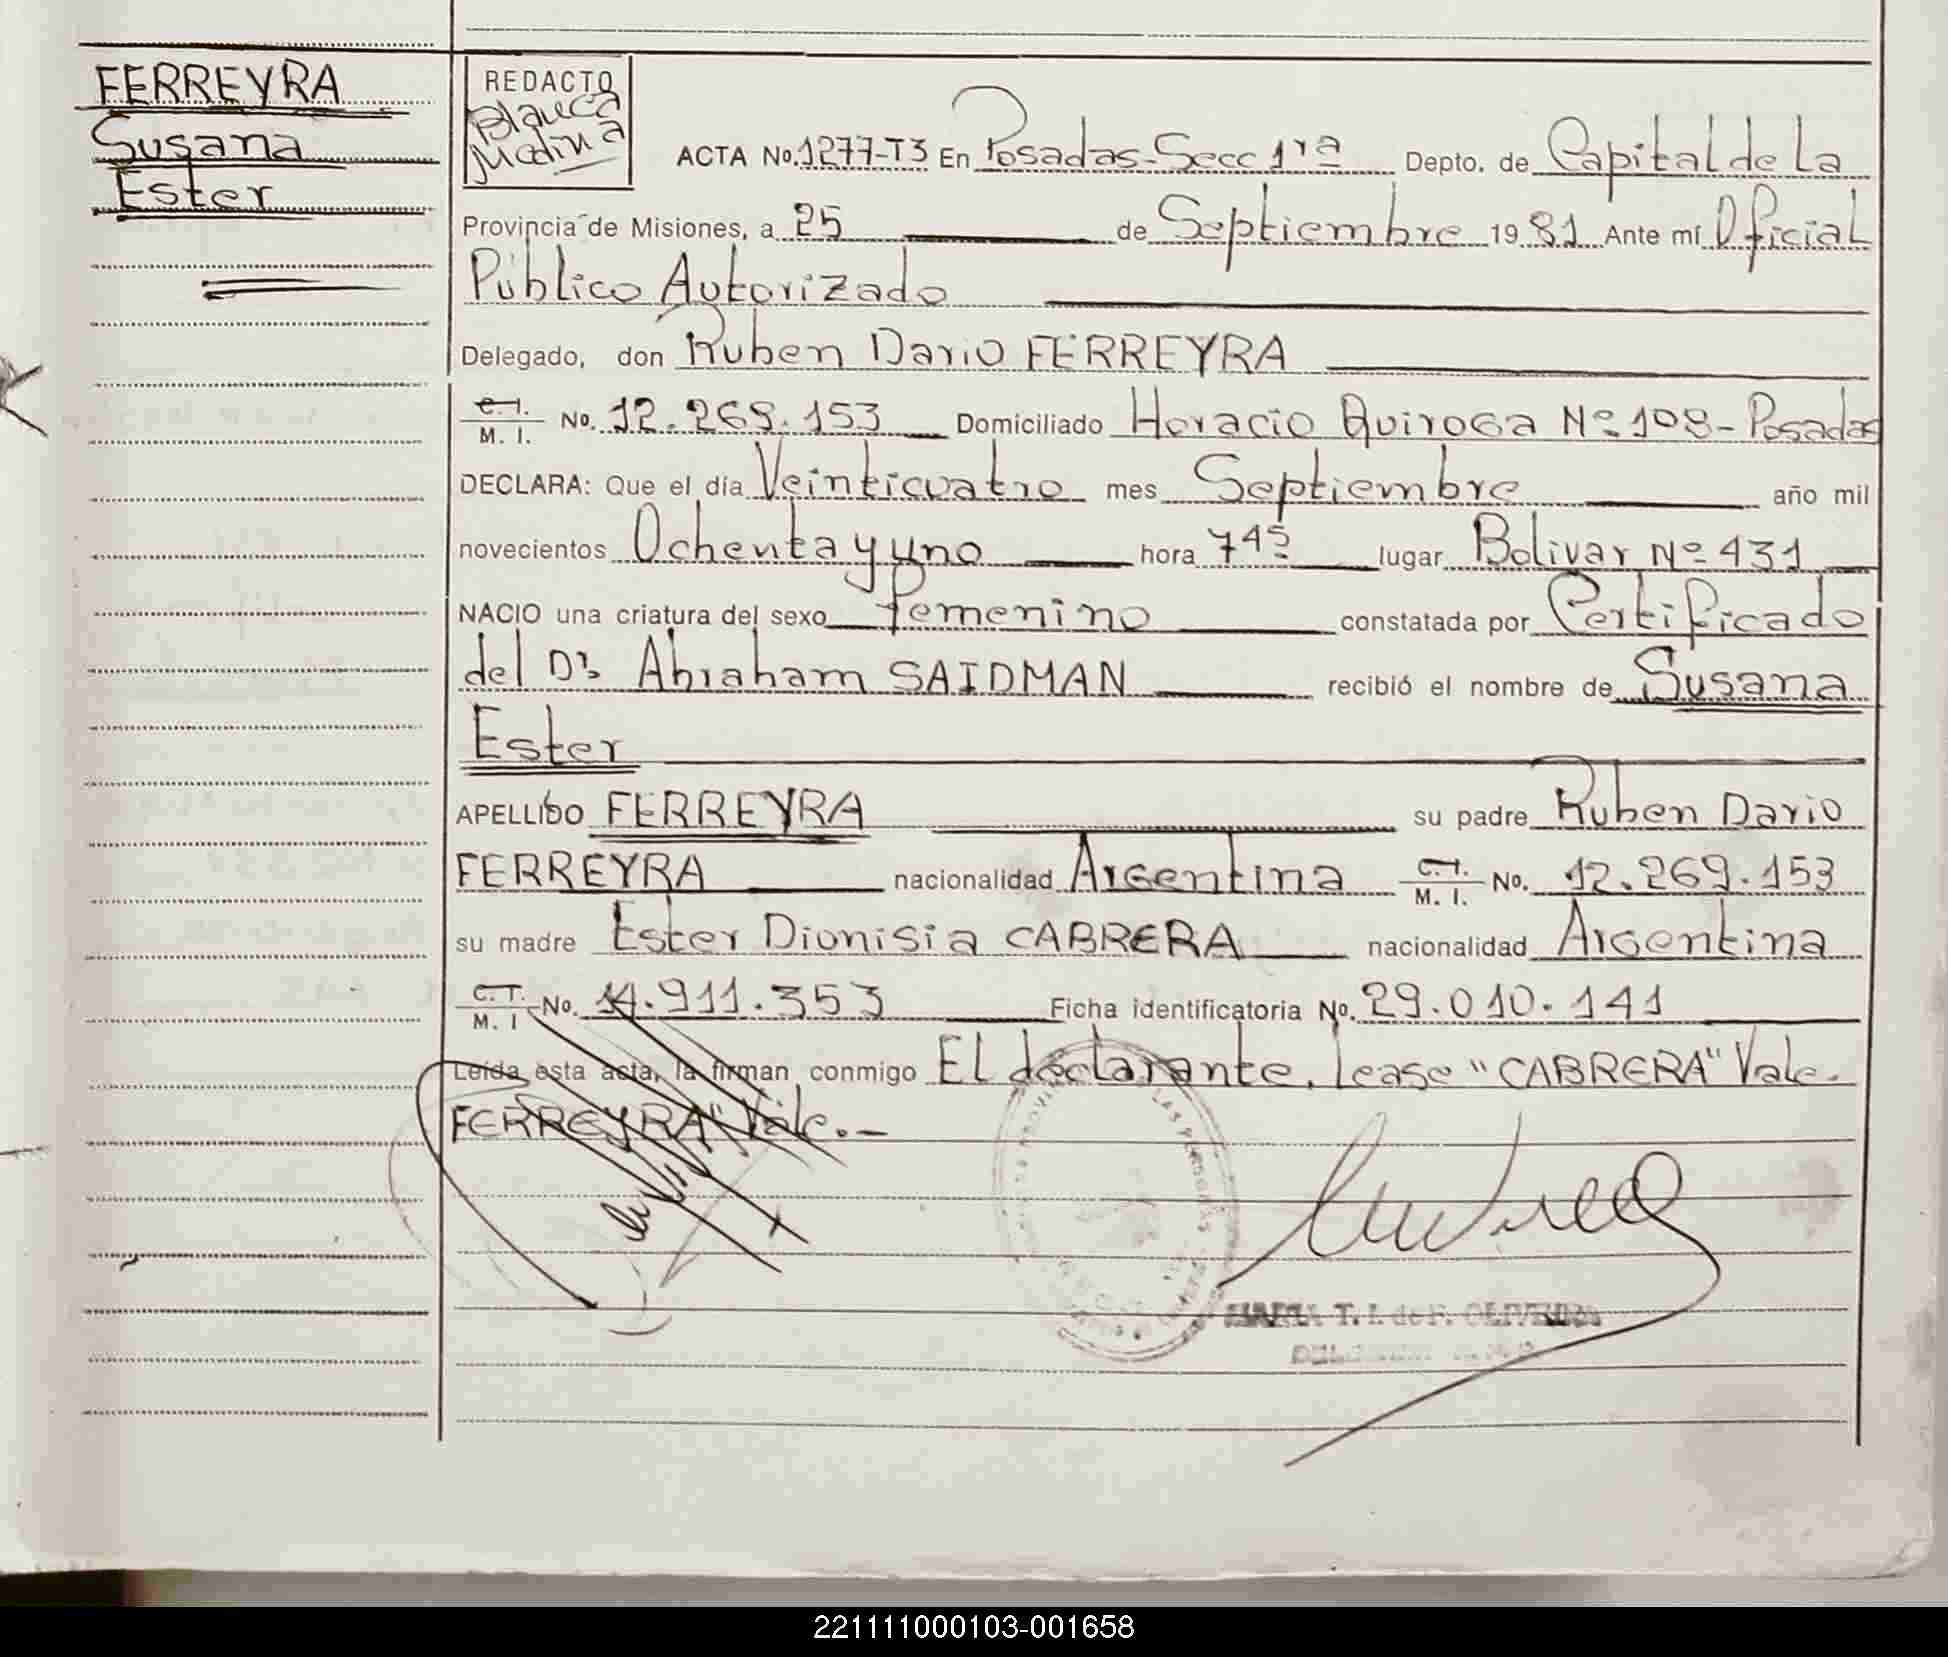 FERREYRA
Susana
Ester
REDACTO
Blanca
Medina
ACTA No. 1277-T3 En Posadas-Secc 1ra Depto. de Capital de La
Provincia de Misiones, a 25 de Septiembre 1981 Ante mí Oficial
Público Autorizado
Delegado, don Ruben Dario FERREYRA
C.I. M. I. No. 12.269.153 Domiciliado Horacio Quiroga Nº 108-Posadas
DECLARA: Que el día Veinticuatro mes Septiembre año mil
novecientos Ochenta y uno hora 745 lugar Bolivar Nº 431
NACIO una criatura del sexo femenino constatada por Certificado
del Dr. Abraham SAIDMAN recibió el nombre de Susana
Ester
APELLIDO FERREYRA su padre Ruben Dario
FERREYRA nacionalidad Argentina C.I. M. I. No. 12.269.153
su madre Ester Dionisia CABRERA nacionalidad Argentina
C.I. M. I No. 14.911.353 Ficha identificatoria No. 29.010.141
Leída esta acta, la firman conmigo El declarante, lease "CABRERA" Vale.
FERREYRA" Vale.-
MARIA T. I. de F. OLIVEIRA
221111000103-001658